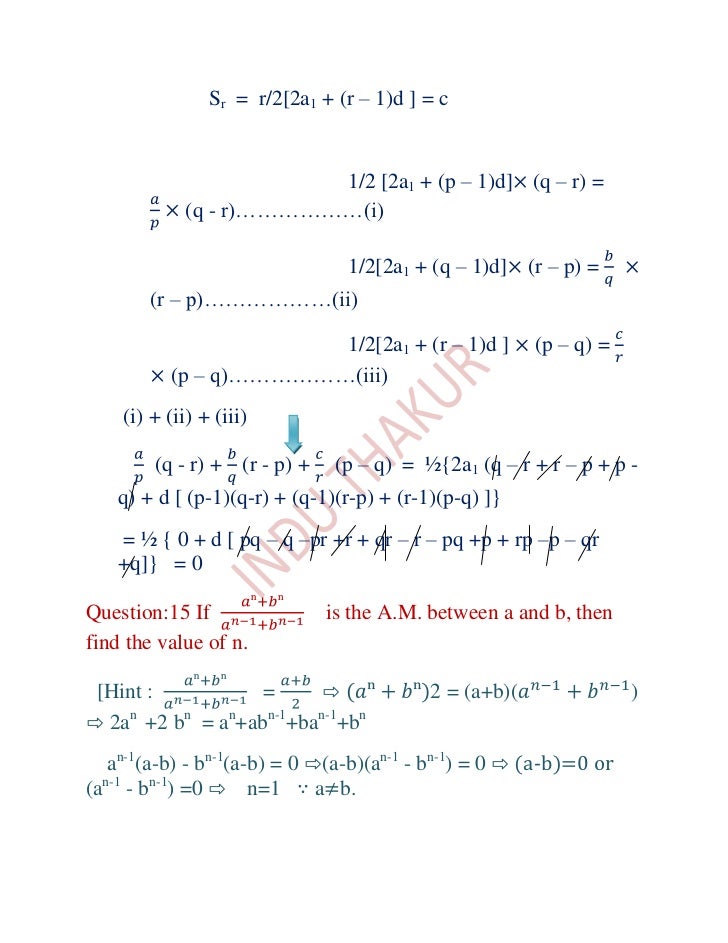 Sᵣ = r/2[2a₁ + (r – 1)d ] = c
1/2 [2a₁ + (p – 1)d]× (q – r) =
a/p × (q - r)………………(i)
1/2[2a₁ + (q – 1)d]× (r – p) = b/q ×
(r – p)………………(ii)
1/2[2a₁ + (r – 1)d ] × (p – q) = c/r
× (p – q)………………(iii)
(i) + (ii) + (iii)
a/p (q - r) + b/q (r - p) + c/r (p – q) = ½{2a₁ (q – r + r – p + p -
q) + d [ (p-1)(q-r) + (q-1)(r-p) + (r-1)(p-q) ]}
= ½ { 0 + d [ pq – q –pr +r + qr – r – pq +p + rp –p – qr
+q]} = 0
Question:15 If (aⁿ+bⁿ)/(aⁿ⁻¹+bⁿ⁻¹) is the A.M. between a and b, then
find the value of n.
[Hint : (aⁿ+bⁿ)/(aⁿ⁻¹+bⁿ⁻¹) = (a+b)/2 ⇨ (aⁿ + bⁿ)2 = (a+b)(aⁿ⁻¹ + bⁿ⁻¹)
⇨ 2aⁿ +2 bⁿ = aⁿ+abⁿ⁻¹+baⁿ⁻¹+bⁿ
aⁿ⁻¹(a-b) - bⁿ⁻¹(a-b) = 0 ⇨(a-b)(aⁿ⁻¹ - bⁿ⁻¹) = 0 ⇨ (a-b)=0 or
(aⁿ⁻¹ - bⁿ⁻¹) =0 ⇨ n=1 ∵ a≠b.
INDU THAKUR